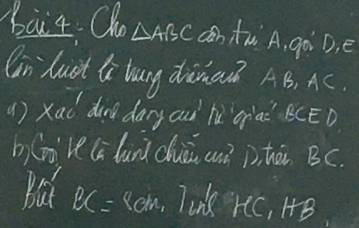 Bài 4: Cho △ABC cân tại A, gọi D, E
lần lượt là trung điểm của AB, AC.
a) Xác định dạng của tứ giác BCED
b) Gọi H là hình chiếu của D trên BC.
Biết BC = 8cm. Tính HC, HB